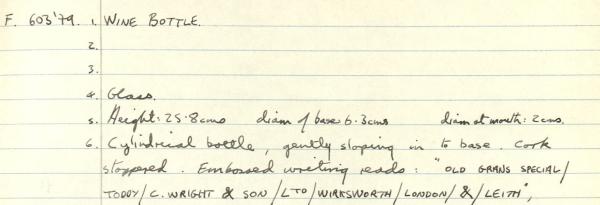 F. 603'79. 1. WINE BOTTLE.
2.
3.
4. Glass.
5. Height: 25.8cms diam of base 6.3cms diam at mouth: 2cms.
6. Cylindrical bottle, gently sloping in to base. Cork
stoppered. Embossed writing reads: "OLD GRANS SPECIAL/
TODDY/C. WRIGHT & SON/LTD/WIRKSWORTH/LONDON/&/LEITH",